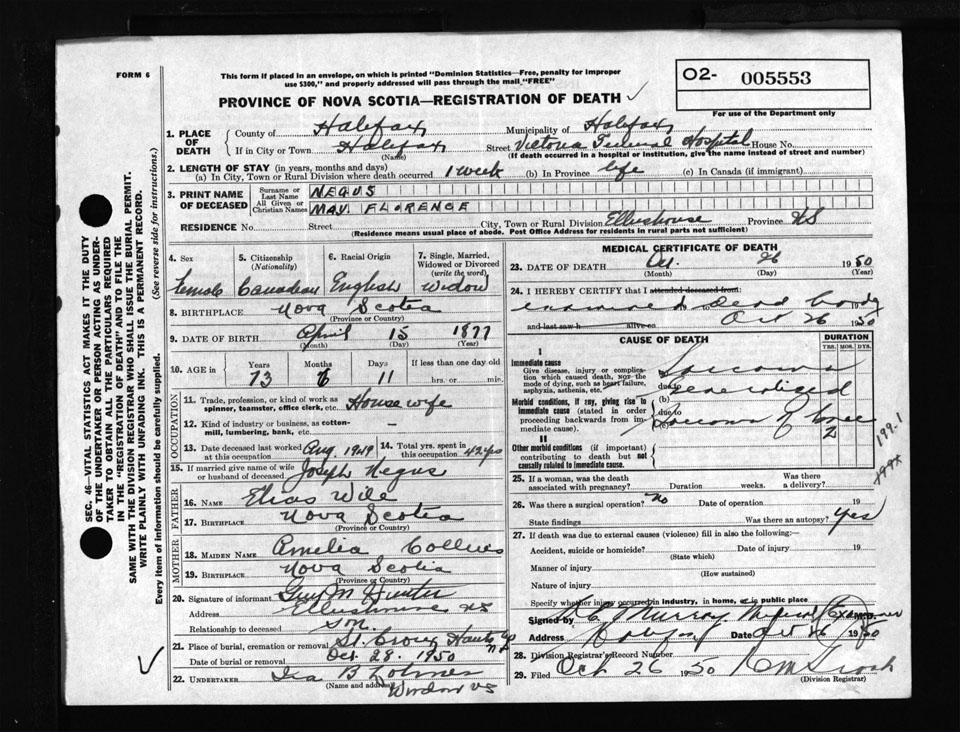 FORM 6
This form if placed in an envelope, on which is printed "Dominion Statistics—Free, penalty for improper
use $300," and properly addressed will pass through the mail "FREE"
O2- 005553
PROVINCE OF NOVA SCOTIA—REGISTRATION OF DEATH ✓
For use of the Department only
1. PLACE OF DEATH
County of Halifax Municipality of Halifax
If in City or Town Halifax (Name) Street Victoria General Hospital House No.
(If death occurred in a hospital or institution, give the name instead of street and number)
2. LENGTH OF STAY (in years, months and days)
(a) In City, Town or Rural Division where death occurred 1 week (b) In Province life (c) In Canada (if immigrant)
3. PRINT NAME OF DECEASED
Surname or Last Name NEGUS
All Given or Christian Names MAY FLORENCE
RESIDENCE No. Street City, Town or Rural Division Ellershouse Province NS
(Residence means usual place of abode. Post Office Address for residents in rural parts not sufficient)
4. Sex Female
5. Citizenship (Nationality) Canadian
6. Racial Origin English
7. Single, Married, Widowed or Divorced (write the word) Widow
8. BIRTHPLACE Nova Scotia
(Province or Country)
9. DATE OF BIRTH April 15 1877
(Month) (Day) (Year)
10. AGE in Years 73 Months 6 Days 11 If less than one day old hrs. or min.
OCCUPATION
11. Trade, profession, or kind of work as spinner, teamster, office clerk, etc. House wife
12. Kind of industry or business, as cotton-mill, lumbering, bank, etc. —
13. Date deceased last worked at this occupation Aug 1949 14. Total yrs. spent in this occupation 42 yrs
15. If married give name of wife or husband of deceased Joseph Negus
FATHER
16. NAME Elias Wile
17. BIRTHPLACE Nova Scotia
(Province or Country)
MOTHER
18. MAIDEN NAME Amelia Collins
19. BIRTHPLACE Nova Scotia
(Province or Country)
20. Signature of informant Guy M Hunter
Address Ellershouse NS
Relationship to deceased Son
21. Place of burial, cremation or removal St. Croix Hants Co NS
Date of burial or removal Oct. 28. 1950
22. UNDERTAKER Ira B
(Name and address) Windsor NS
MEDICAL CERTIFICATE OF DEATH
23. DATE OF DEATH Oct. 26 1950
(Month) (Day) (Year)
24. I HEREBY CERTIFY that I attended deceased from:
examined dead body
and last saw h alive on Oct 26 1950
CAUSE OF DEATH
DURATION
YRS. MOS. DYS.
I
Immediate cause
Give disease, injury or complication which caused death, NOT the mode of dying, such as heart failure, asphyxia, asthenia, etc.
Sarcoma
due to
(b) generalized
Morbid conditions, if any, giving rise to immediate cause (stated in order proceeding backwards from immediate cause).
due to
(c) Sarcoma of knee 2
199-1
II
Other morbid conditions (if important) contributing to death but not causally related to immediate cause.
25. If a woman, was the death associated with pregnancy? Duration weeks. Was there a delivery?
26. Was there a surgical operation? No Date of operation 19
State findings Was there an autopsy? Yes
27. If death was due to external causes (violence) fill in also the following:—
Accident, suicide or homicide? Date of injury 19
(State which)
Manner of injury
(How sustained)
Nature of injury
Specify whether injury occurred in industry, in home, or in public place
Signed by Murray Medical Examiner M.D.
Address Halifax Date Oct 26 1950
28. Division Registrar's Record Number
29. Filed Oct. 26 1950
(Division Registrar)
SEC. 46—VITAL STATISTICS ACT MAKES IT THE DUTY
OF THE UNDERTAKER OR PERSON ACTING AS UNDER-
TAKER TO OBTAIN ALL THE PARTICULARS REQUIRED
IN THE "REGISTRATION OF DEATH" AND TO FILE THE
SAME WITH THE DIVISION REGISTRAR WHO SHALL ISSUE THE BURIAL PERMIT.
WRITE PLAINLY WITH UNFADING INK. THIS IS A PERMANENT RECORD.
Every item of information should be carefully supplied. (See reverse side for instructions.)